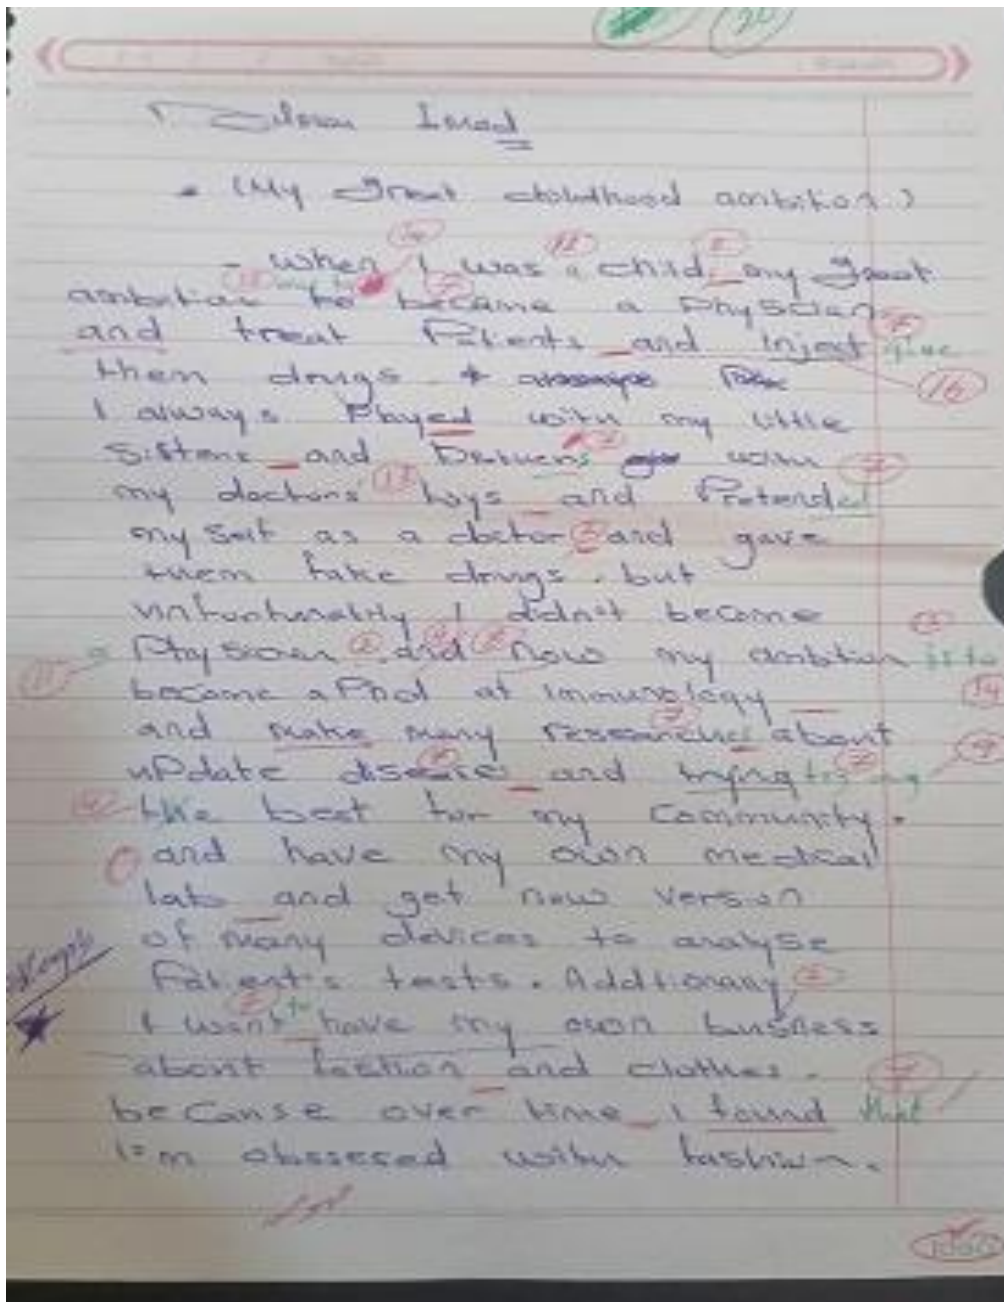 (My Great childhood ambition.)
- when I was a child, my great
ambition to became a Physcian
and treat Patients and inject give
them drugs.
I always Played with my little
Sisters and with
my doctors' toys and Pretended
my self as a doctor and gave
them fake drugs. but
I didn't become
a Physcian and now my ambition is to
become a Phd at immunology
and make many researches about
update diseases and trying
the best for my Community.
and have my own medical
lab and get new version
of many devices to analyse
Patient's tests. Addtionary
I want to have my own business
about fashion and clothes.
because over time I found that
I'm obssesed with fashion.